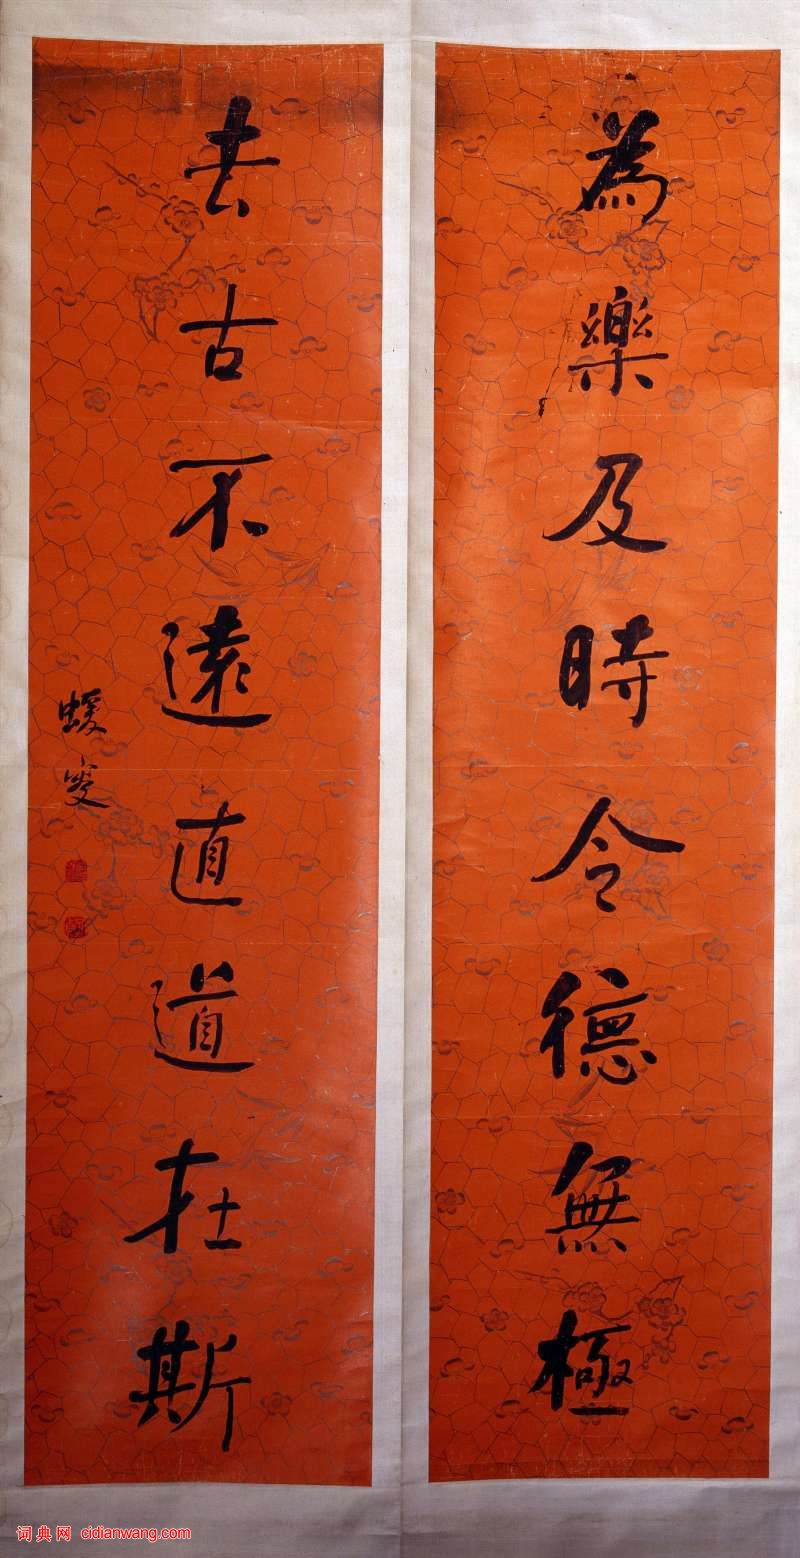 為樂及時令德無極
去古不遠直道在斯
蝯叟
词典网 cidianwang.com